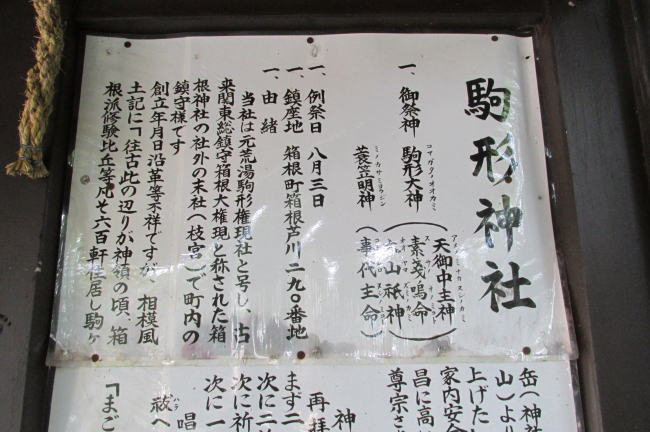 駒形神社
一、御祭神　駒形大神（天御中主神
コマガタノオオカミ
アメノミナカヌシノカミ
素戔嗚命
山祇神）
蓑笠明神（事代主命）
ミノカサミョウジン
一、例祭日　八月三日
一、鎮座地　箱根町箱根芦川二九〇番地
一、由緒
当社は元荒湯駒形権現社と号し、古
来関東総鎮守箱根大権現と称された箱
根神社の社外の末社（枝宮）で町内の
鎮守様です
創立年月日沿革等不祥ですが、相模風
土記に「往古此の辺りが神領の頃、箱
根派修験比丘等凡そ六百軒住居し駒ヶ
岳（神社
山）より
上げたい
家内安全
昌に高
尊宗さ
神
再拝
まず二
次に二
次に祈
次に一
唱
祓へ
ハラ
「まご